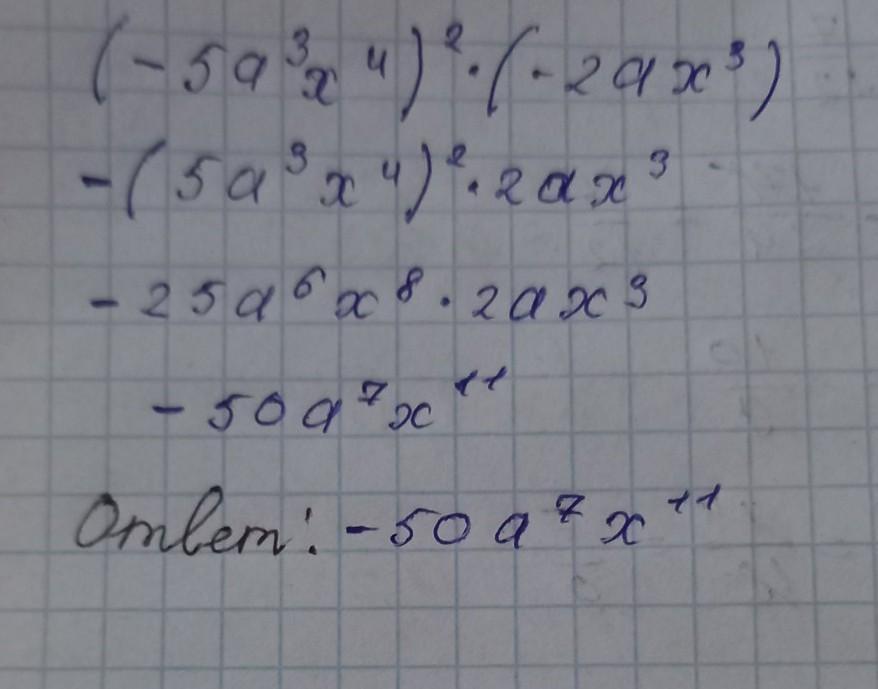 (-5a³x⁴)²·(-2ax³)
-(5a³x⁴)²·2ax³
-25a⁶x⁸·2ax³
-50a⁷x¹¹
Ответ: -50a⁷x¹¹